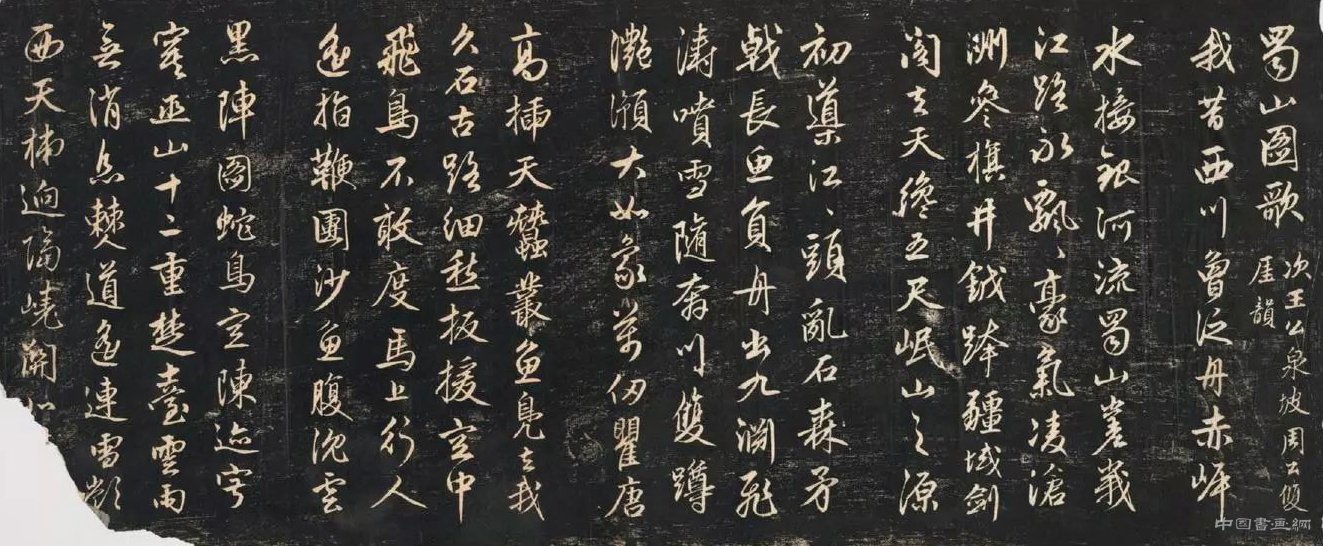 蜀山圖歌
次王公泉坡周公雙
厓韻
我昔西川曾泛舟赤岸
水接銀河流蜀山
江路永飄〻豪氣凌滄
洲參旗井鉞跨疆域劍
閣去天纔五尺岷山之源
初導江〻頭亂石森矛
戟長魚負舟出九淵飛
濤噴雪隨奔川雙蹲
灔澦大如象萬仞瞿唐
高插天蠶叢魚鳧去我
久石古路細愁扳援空中
飛鳥不敢度馬上行人
遥指鞭團沙魚腹沉雲
黑陣圖蛇鳥空陳迹
巫山十二重楚臺雲雨
無消息僰道遥連雪嶺
西天梯迥隔嶢關
中国書画網